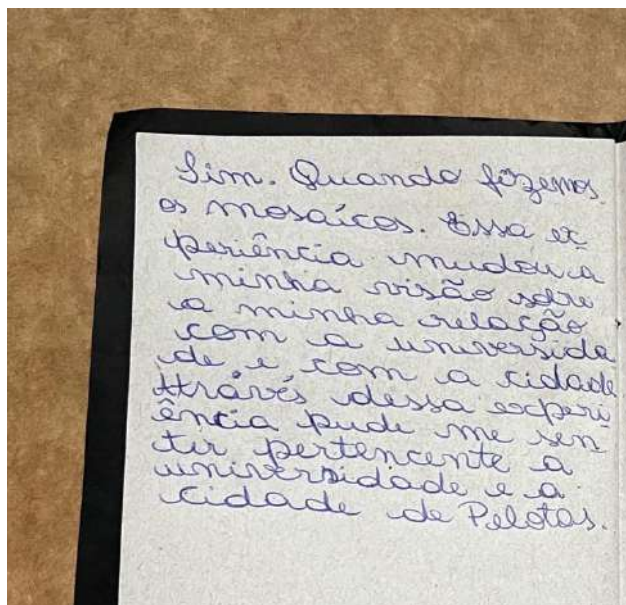 Sim. Quando fizemos
os mosaicos. Essa ex
periência mudou a
minha visão sobre
a minha relação
com a universida
de e com a cidade
Através dessa experi
ência pude me sen
tir pertencente a
universidade e a
cidade de Pelotas.